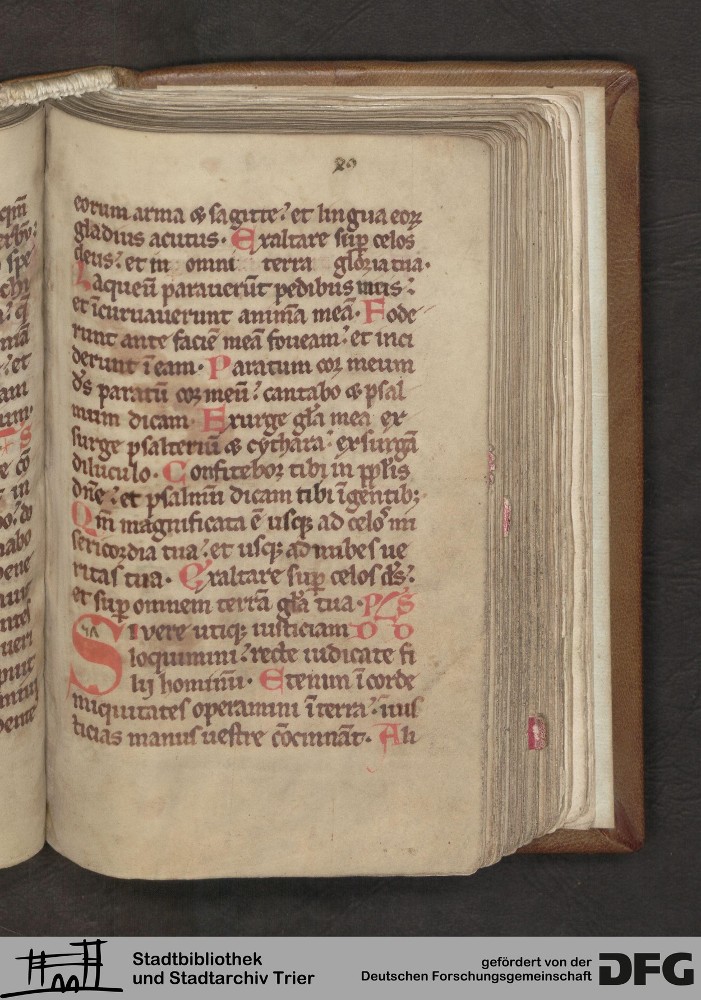 eorum arma & sagitte: et lingua eoꝝ
gladius acutus. Exaltare sup̄ celos
deus: et in omni terra gloria tua.
Laqueū parauerūt pedibus meis:
et īcuruauerunt animā meā. Fode
runt ante faciē meā foueam: et inci
derunt ī eam. Paratum cor meum
ds̄ paratū cor meū: cantabo & psal
mum dicam. Exurge gl̄a mea ex
surge psalteriū & cythara: exsurgā
diluculo. Confitebor tibi in ppl̄is
dn̄e: et psalmū dicam tibi ī gentib;
Qm̄ magnificata ē usq; ad celos mi
sericordia tua: et usq; ad nubes ue
ritas tua. Exaltare sup̄ celos ds̄:
et sup̄ omnem terrā gl̄a tua. PS̄
Si vere utiq; iusticiam D D
loquimini: recte iudicate fi
lij hominū. Etenim ī corde
iniquitates operamini ī terra: inius
ticias manus uestre cōcinnāt. Ali
Stadtbibliothek
und Stadtarchiv Trier
gefördert von der
Deutschen Forschungsgemeinschaft DFG